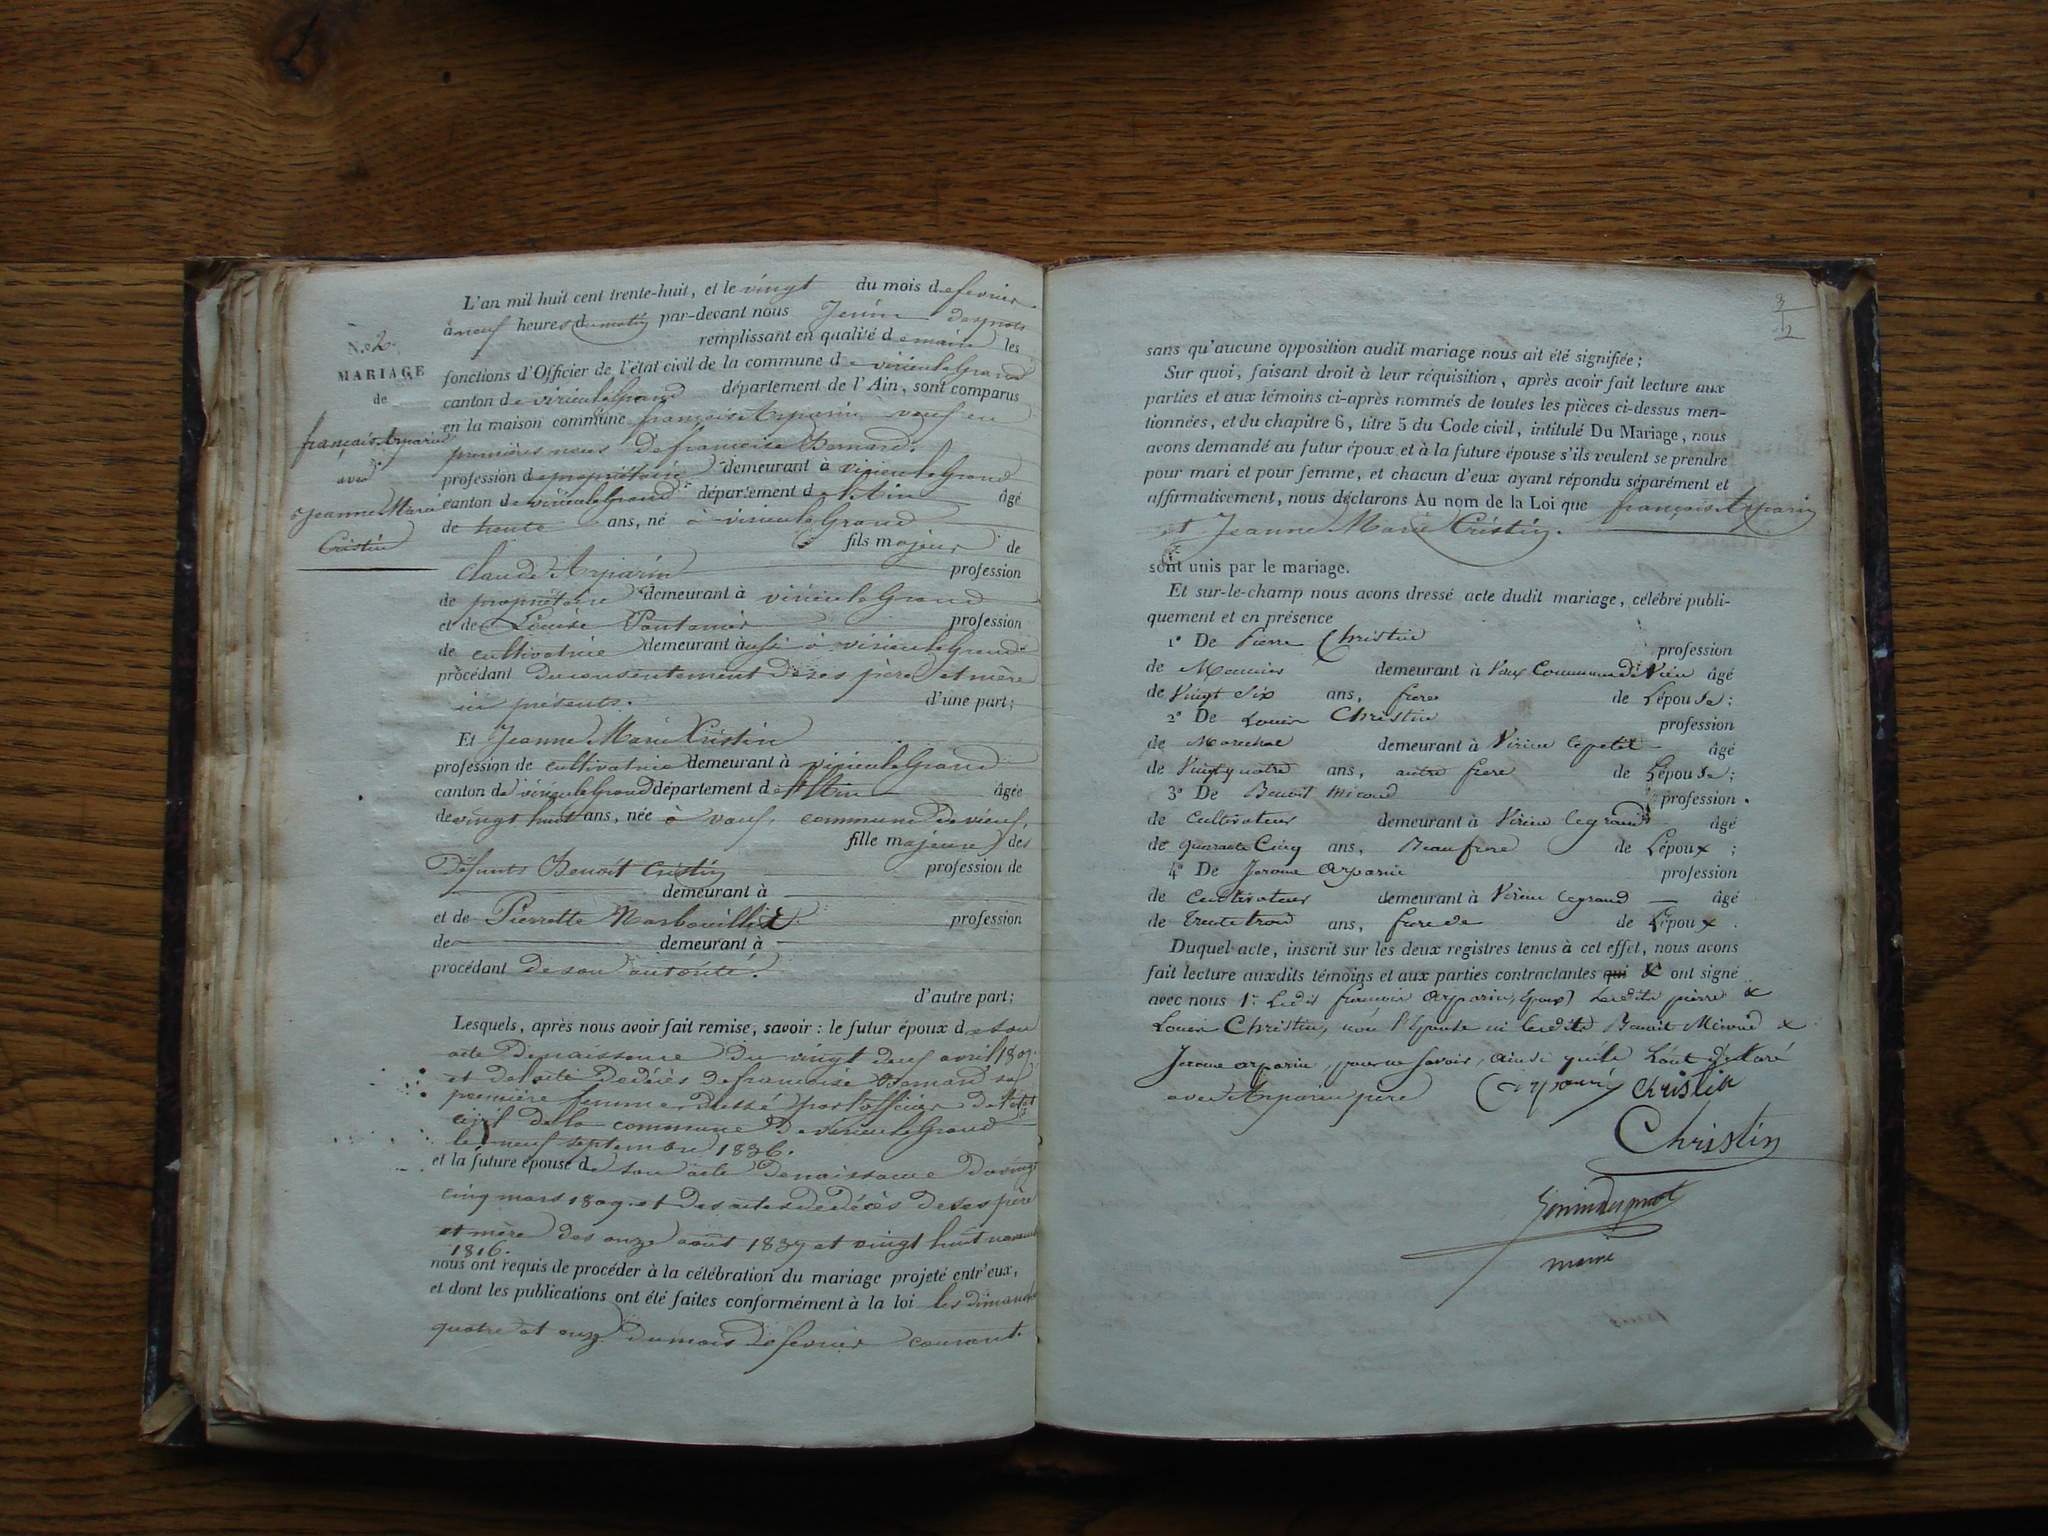 N.º 2.
MARIAGE
de
françois Arparin
avec
Jeanne Marie
Cristin
L'an mil huit cent trente-huit, et le vingt du mois de fevrier
à neuf heures du matin par-devant nous Jenin
remplissant en qualité de maire les
fonctions d'Officier de l'état civil de la commune de virieu le Grand
canton de virieu le Grand département de l'Ain, sont comparus
en la maison commune françois Arparin veuf en
premières noces de francoise Bernard.
profession de propriétaire demeurant à virieu le Grand
canton de virieu le Grand département de l'Ain âgé
de trente ans, né à virieu le Grand
fils majeur de
Claude Arparin profession
de propriétaire demeurant à virieu le Grand
et de Louise profession
de cultivatrice demeurant aussi à virieu le Grand
procédant du consentement de ses père et mère
ici présents. d'une part;
Et Jeanne Marie Cristin
profession de cultivatrice demeurant à virieu le Grand
canton de virieu le Grand département de l'Ain âgée
de vingt huit ans, née à commune de vieu,
fille majeure des
Défunts Benoit Cristin profession de
demeurant à
et de Pierrette profession
de demeurant à
procédant de son autorité.
d'autre part;
Lesquels, après nous avoir fait remise, savoir : le futur époux de son
acte de naissance du vingt avril
et de acte de décès de francoise Bernard sa
première femme dressé par l'officier de l'état
civil de la commune de virieu le Grand
le neuf septembre 1836.
et la future épouse de son acte de naissance du vingt
cinq mars 1809. et des actes de décès de ses père
et mère des onze août 1837 et vingt huit
1816.
nous ont requis de procéder à la célébration du mariage projeté entr'eux,
et dont les publications ont été faites conformément à la loi les dimanches
quatre et onze du mois de fevrier courant.
3
2
sans qu'aucune opposition audit mariage nous ait été signifiée;
Sur quoi, faisant droit à leur réquisition, après avoir fait lecture aux
parties et aux témoins ci-après nommés de toutes les pièces ci-dessus men-
tionnées, et du chapitre 6, titre 5 du Code civil, intitulé Du Mariage, nous
avons demandé au futur époux et à la future épouse s'ils veulent se prendre
pour mari et pour femme, et chacun d'eux ayant répondu séparément et
affirmativement, nous déclarons Au nom de la Loi que françois Arparin
et Jeanne Marie Cristin.
sont unis par le mariage.
Et sur-le-champ nous avons dressé acte dudit mariage, célébré publi-
quement et en présence
1º De Pierre Christin profession
de Meunier demeurant à Vaux Commune de Vieu âgé
de Vingt Six ans, frere de L'épouse;
2º De Louis Christin profession
de Marechal demeurant à Virieu le petit âgé
de Vingt quatre ans, autre frere de L'épouse;
3º De Benoit Micoud profession
de Cultivateur demeurant à Virieu le grand âgé
de quarante Cinq ans, Beau frere de L'époux;
4º De Jerome Arparin profession
de Cultivateur demeurant à Virieu le grand âgé
de trente trois ans, frere de de L'époux.
Duquel acte, inscrit sur les deux registres tenus à cet effet, nous avons
fait lecture auxdits témoins et aux parties contractantes qui ont signé
avec nous 1º Ledit francois Arparin, Epoux, Lesdits pierre &
Louis Christin, non l'Epouse ni lesdits Benoit Micoud &
Jerome arparin, pour ne savoir, ainsi qu'ils L'ont déclaré
avec Arparin pere Arparin Christin
Christin
maire